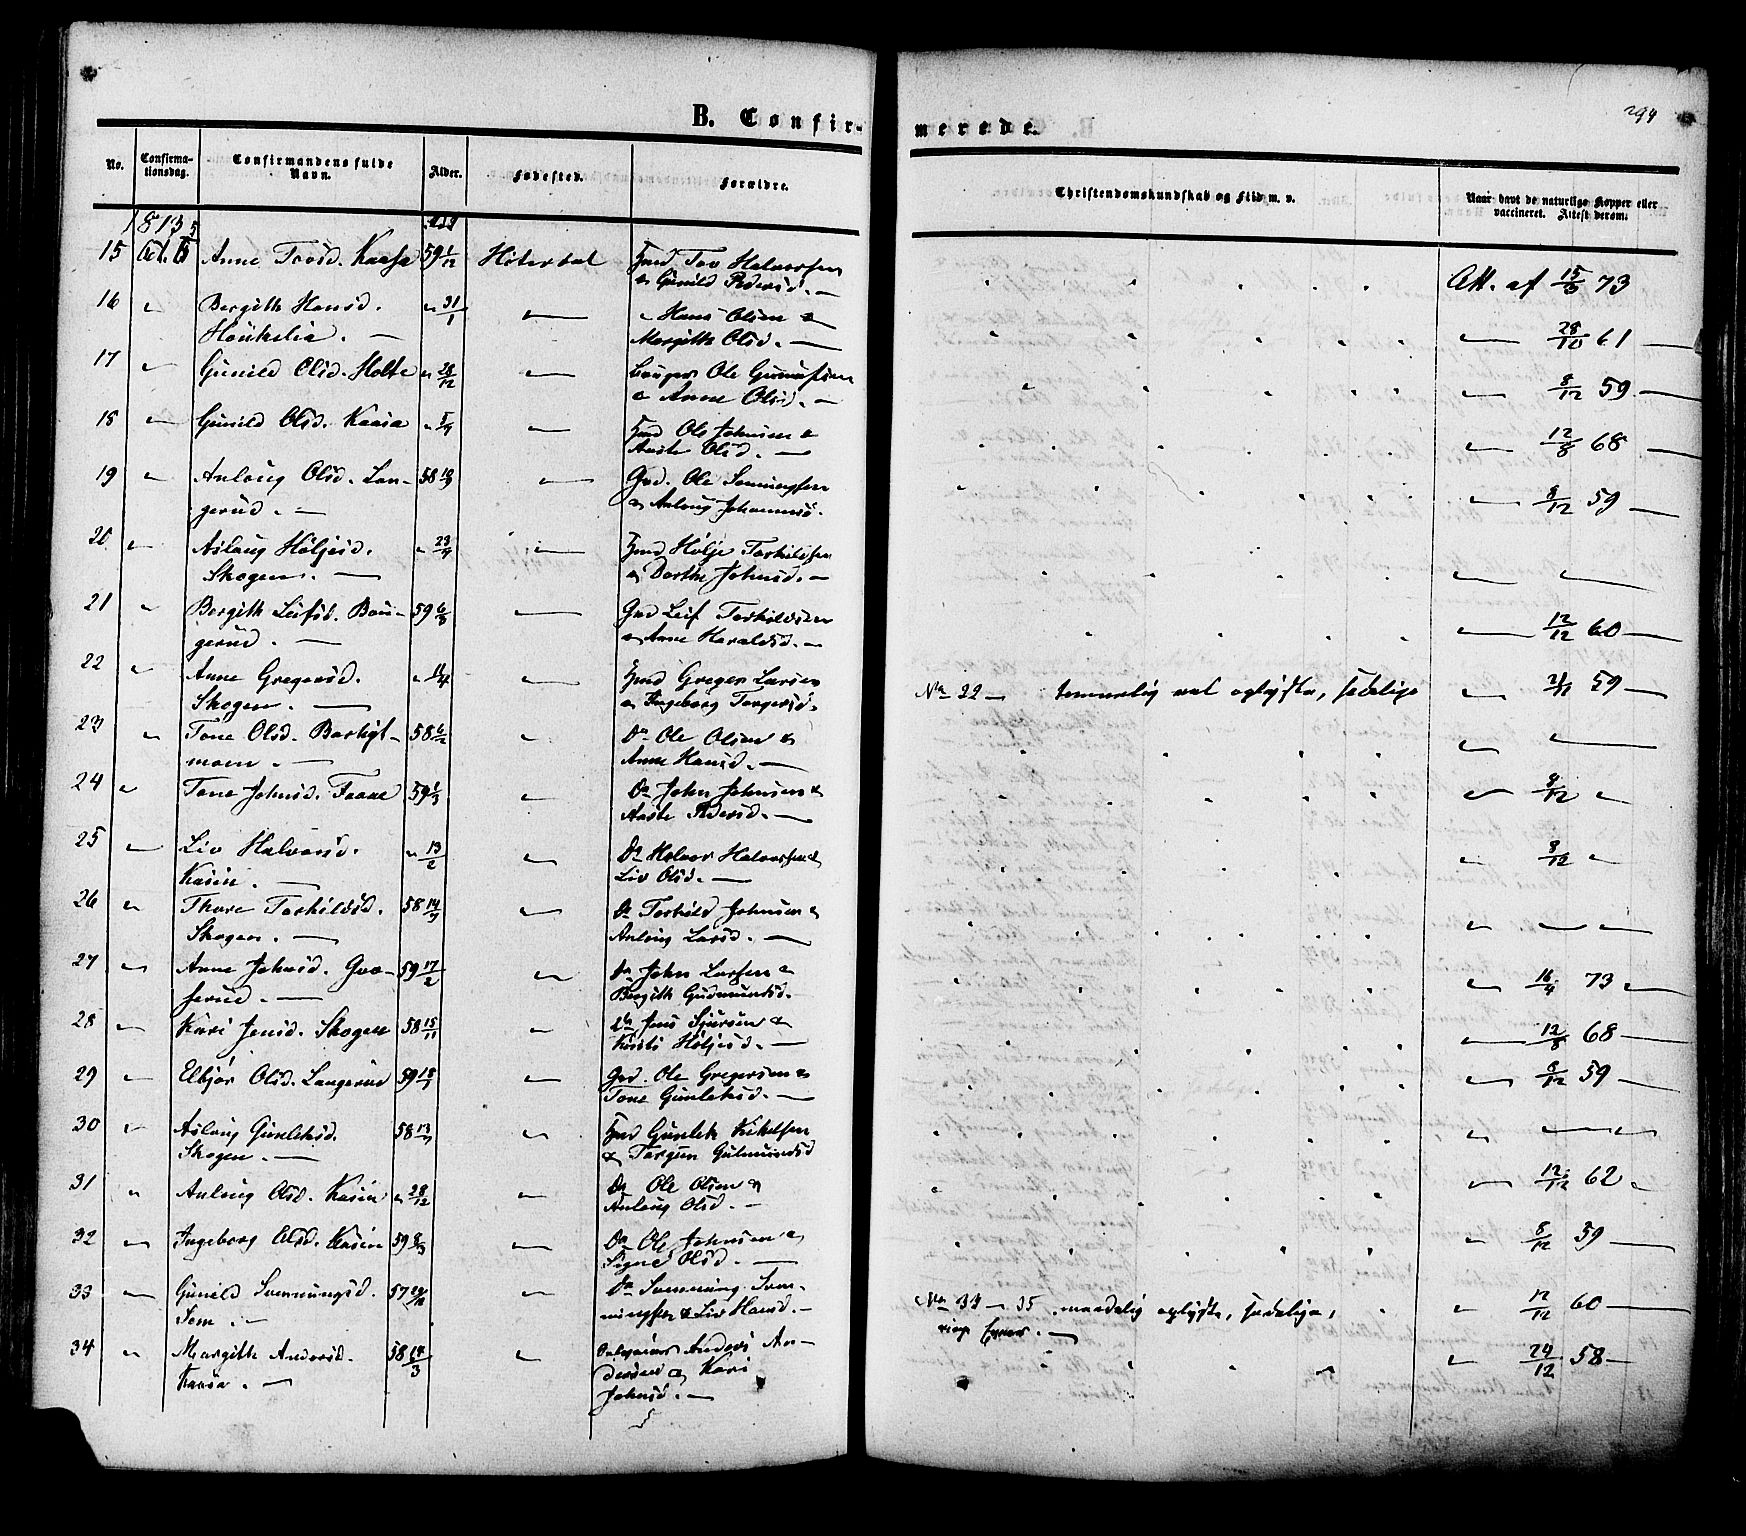 B. Confir-
merede.
294
No.
Confirma-
tionsdag.
Confirmandens fulde
Navn.
Alder.
Fødested.
Forældre.
Christendomskundskab og Flid m. v.
Naar havt de naturlige Kopper eller
vaccineret. Attest derom.
1873
15 Oct. 5 Anne Tovsd. Kaasa 59 1/12 Hiterdal Hmd Tov Halvorsen
& Gunild Pedersd. Att. af 15/3 73
16 " Bergith Hansd. " 31/1 " Hans Olsen &
Houkelia. Margith Olsd. " 28/10 61
17 " Gunild Olsd. Holte " 28/12 " Ole
& Anne Olsd. " 8/12 59
18 " Gunild Olsd. Kaasa " " Hmd Ole Johnsen &
Aaste Olsd. " 12/8 68
19 " Anlaug Olsd. Lan- 58 " Grd. Ole Sommungsen
gerud. & Anlaug Johannesd. " 8/12 59
20 " Aslaug Høljesd. " 23/9 " Hmd Hølje Torkildsen
Skogen. & Dorthe Johnsd. "
21 " Bergith Leifsd. Bau- 59 6/3 " Grd Leif Torkildsen
gerud. & Anne Haraldsd. " 12/12 60
22 " Anne Gregersd. " 11/4 Hmd Greger Larsen
Skogen. & Ingeborg Torgersd.
No 22 — temmelig vel oplyste, sædelige " 2/11 59
23 " Tone Olsd. 58 6/2 " Do Ole Olsen &
moen. Anne Hansd. "
24 " Tone Johnsd. 59 1/3 " Do John Johnsen &
Aaste Pedersd. " 8/12 "
25 " Liv Halvorsd. " 13/2 " Do Halvor Halvorsen &
Kasin. Liv Olsd. " 8/12 "
26 " Thore Torkildsd. 58 14/9 " Do Torkild Johnsen &
Skogen. Anlaug Larsd. "
27 " Anne Johnsd. Gra- 59 17/2 " Do John Larsen &
serud. Bergith Gudmundsd. " 16/4 73
28 " Kari Jensd. Skogen 58 15/11 " Do Jens Sjursen &
Kirsti Høljesd. " 12/8 68
29 " Elbjør Olsd. Langerud 59 18/1 " Grd. Ole Gregersen &
Tone Gunleksd. " 8/12 59
30 " Aslaug Gunleksd. 58 13/9 " Hmd Gunlek Kikelsen
Skogen. & Torgun Gulmundsd "
31 " Anlaug Olsd. Kasin " 28/12 " Do Ole Olsen &
Anlaug Olsd. " 12/12 62
32 " Ingeborg Olsd. Kasin 59 8/3 " Do Ole Johnsen &
Signe Olsd. " 8/12 59
33 " Gunild Sommungsd. 57 " Do Sommung Som-
Tem. mungsen & Liv Hansd.
No 33 — 35 maadelig oplyste, sædelige, " 12/12 60
ringe Evner.
34 " Margith Andersd. 58 14/3 " Anders An-
Kaasa. dersen & Kari
Johnsd. " 24/12 58